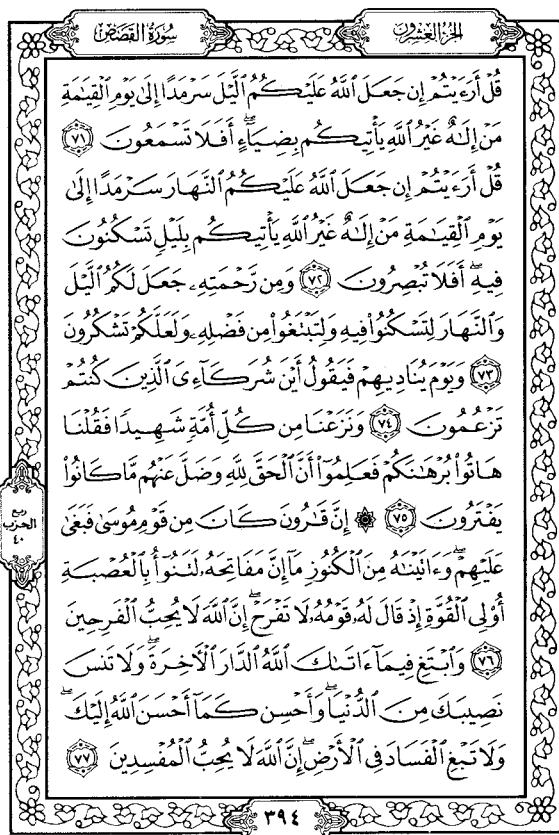 سُورَةُ القَصَصِ
الجُزءُ العِشْرُونَ
قُلْ أَرَءَيْتُمْ إِن جَعَلَ ٱللَّهُ عَلَيْكُمُ ٱلَّيْلَ سَرْمَدًا إِلَىٰ يَوْمِ ٱلْقِيَٰمَةِ
مَنْ إِلَٰهٌ غَيْرُ ٱللَّهِ يَأْتِيكُم بِضِيَآءٍ ۖ أَفَلَا تَسْمَعُونَ ٧١
قُلْ أَرَءَيْتُمْ إِن جَعَلَ ٱللَّهُ عَلَيْكُمُ ٱلنَّهَارَ سَرْمَدًا إِلَىٰ
يَوْمِ ٱلْقِيَٰمَةِ مَنْ إِلَٰهٌ غَيْرُ ٱللَّهِ يَأْتِيكُم بِلَيْلٍ تَسْكُنُونَ
فِيهِ ۖ أَفَلَا تُبْصِرُونَ ٧٢ وَمِن رَّحْمَتِهِۦ جَعَلَ لَكُمُ ٱلَّيْلَ
وَٱلنَّهَارَ لِتَسْكُنُوا۟ فِيهِ وَلِتَبْتَغُوا۟ مِن فَضْلِهِۦ وَلَعَلَّكُمْ تَشْكُرُونَ
٧٣ وَيَوْمَ يُنَادِيهِمْ فَيَقُولُ أَيْنَ شُرَكَآءِىَ ٱلَّذِينَ كُنتُمْ
تَزْعُمُونَ ٧٤ وَنَزَعْنَا مِن كُلِّ أُمَّةٍ شَهِيدًا فَقُلْنَا
هَاتُوا۟ بُرْهَٰنَكُمْ فَعَلِمُوٓا۟ أَنَّ ٱلْحَقَّ لِلَّهِ وَضَلَّ عَنْهُم مَّا كَانُوا۟
يَفْتَرُونَ ٧٥ ۞ إِنَّ قَٰرُونَ كَانَ مِن قَوْمِ مُوسَىٰ فَبَغَىٰ
عَلَيْهِمْ ۖ وَءَاتَيْنَٰهُ مِنَ ٱلْكُنُوزِ مَآ إِنَّ مَفَاتِحَهُۥ لَتَنُوٓأُ بِٱلْعُصْبَةِ
أُو۟لِى ٱلْقُوَّةِ إِذْ قَالَ لَهُۥ قَوْمُهُۥ لَا تَفْرَحْ ۖ إِنَّ ٱللَّهَ لَا يُحِبُّ ٱلْفَرِحِينَ
٧٦ وَٱبْتَغِ فِيمَآ ءَاتَىٰكَ ٱللَّهُ ٱلدَّارَ ٱلْءَاخِرَةَ ۖ وَلَا تَنسَ
نَصِيبَكَ مِنَ ٱلدُّنْيَا ۖ وَأَحْسِن كَمَآ أَحْسَنَ ٱللَّهُ إِلَيْكَ ۖ
وَلَا تَبْغِ ٱلْفَسَادَ فِى ٱلْأَرْضِ ۖ إِنَّ ٱللَّهَ لَا يُحِبُّ ٱلْمُفْسِدِينَ ٧٧
ربع
الحزب
٤٠
٣٩٤